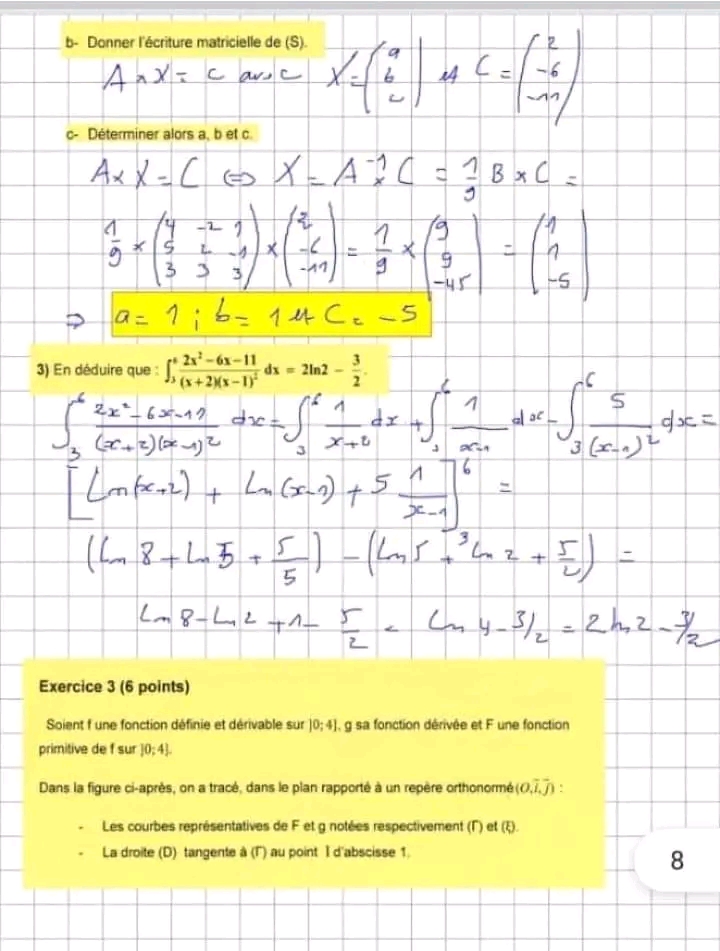 b- Donner l'écriture matricielle de (S).
A × X = C avec X = (a b c) et C = (2 -6 -11)
c- Déterminer alors a, b et c.
A × X = C ⇔ X = A⁻¹ × C = 1/9 B × C =
1/9 × (4 -2 1 / 5 2 -1 / 3 3 3) × (2 -6 -11) = 1/9 × (9 9 -45) = (1 1 -5)
⇒ a = 1 ; b = 1 et C = -5
3) En déduire que : ∫₃⁶ (2x² - 6x - 11)/((x+2)(x-1)²) dx = 2ln2 - 3/2.
∫₃⁶ (2x² - 6x - 11)/((x+2)(x-1)²) dx = ∫₃⁶ 1/(x+2) dx + ∫₃⁶ 1/(x-1) dx - ∫₃⁶ 5/(x-1)² dx =
[Ln(x+2) + Ln(x-1) + 5 1/(x-1)]₃⁶ =
(Ln 8 + Ln 5 + 5/5) - (Ln 5 + Ln 2 + 5/2) =
Ln 8 - Ln 2 + 1 - 5/2 = Ln 4 - 3/2 = 2 ln 2 - 3/2
Exercice 3 (6 points)
Soient f une fonction définie et dérivable sur ]0; 4], g sa fonction dérivée et F une fonction
primitive de f sur ]0; 4].
Dans la figure ci-après, on a tracé, dans le plan rapporté à un repère orthonormé (O, i⃗, j⃗) :
- Les courbes représentatives de F et g notées respectivement (Γ) et (ξ).
- La droite (D) tangente à (Γ) au point I d'abscisse 1.
8